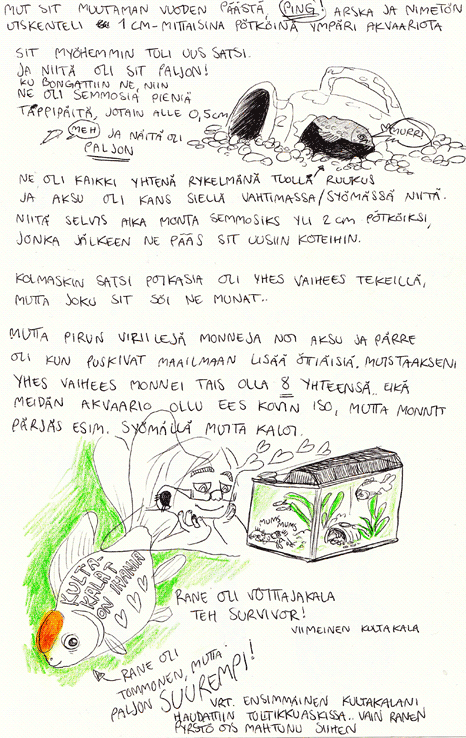 MUT SIT MUUTAMAN VUODEN PÄÄSTÄ, PING! ARSKA JA NIMETÖN
UISKENTELI 1 CM-MITTAISINA PÖTKÖINÄ YMPÄRI AKVAARIOTA
SIT MYÖHEMMIN TULI UUS SATSI.
JA NIITÄ OLI SIT PALJON!
KU BONGATTIIN NE, NIIN
NE OLI SEMMOSIA PIENIÄ
TÄPPIPÄITÄ, JOTAIN ALLE 0,5CM
MEH JA NÄITÄ OLI
PALJON
2
MURRI
NE OLI KAIKKI YHTENÄ RYKELMÄNÄ TUOLLA RUUKUS
JA AKSU OLI KANS SIELLÄ VAHTIMASSA/SYÖMÄSSÄ NIITÄ.
NIITÄ SELVIS AIKA MONTA SEMMOSIKS YLI 2 CM PÖTKÖIKSI,
JONKA JÄLKEEN NE PÄÄS SIT UUSIIN KOTEIHIN.
KOLMASKIN SATSI POIKASIA OLI YHES VAIHEES TEKEILLÄ,
MUTTA JOKU SIT SÖI NE MUNAT..
MUTTA PIRUN VIRIILEJÄ MONNEJA NOI AKSU JA PÄRRE
OLI KUN PUSKIVAT MAAILMAAN LISÄÄ ÖTIÄISIÄ. MUISTAAKSENI
YHES VAIHEES MONNEI TAIS OLLA 8 YHTEENSÄ.. EIKÄ
MEIDÄN AKVAARIO OLLU EES KOVIN ISO, MUTTA MONNIT
PÄRJÄS ESIM. SYÖMÄLLÄ MUITA KALOI.
MUMS MUMS
KULTA-
KALAT
ON IHANIA
RANE OLI VOITTAJAKALA
TEH SURVIVOR!
VIIMEINEN KULTAKALA
RANE OLI
TOMMONEN, MUTTA
PALJON SUUREMPI!
VRT. ENSIMMÄINEN KULTAKALANI
HAUDATTIIN TULITIKKUASKISSA.. VAIN RANEN
PYRSTÖ OIS MAHTUNU SIIHEN